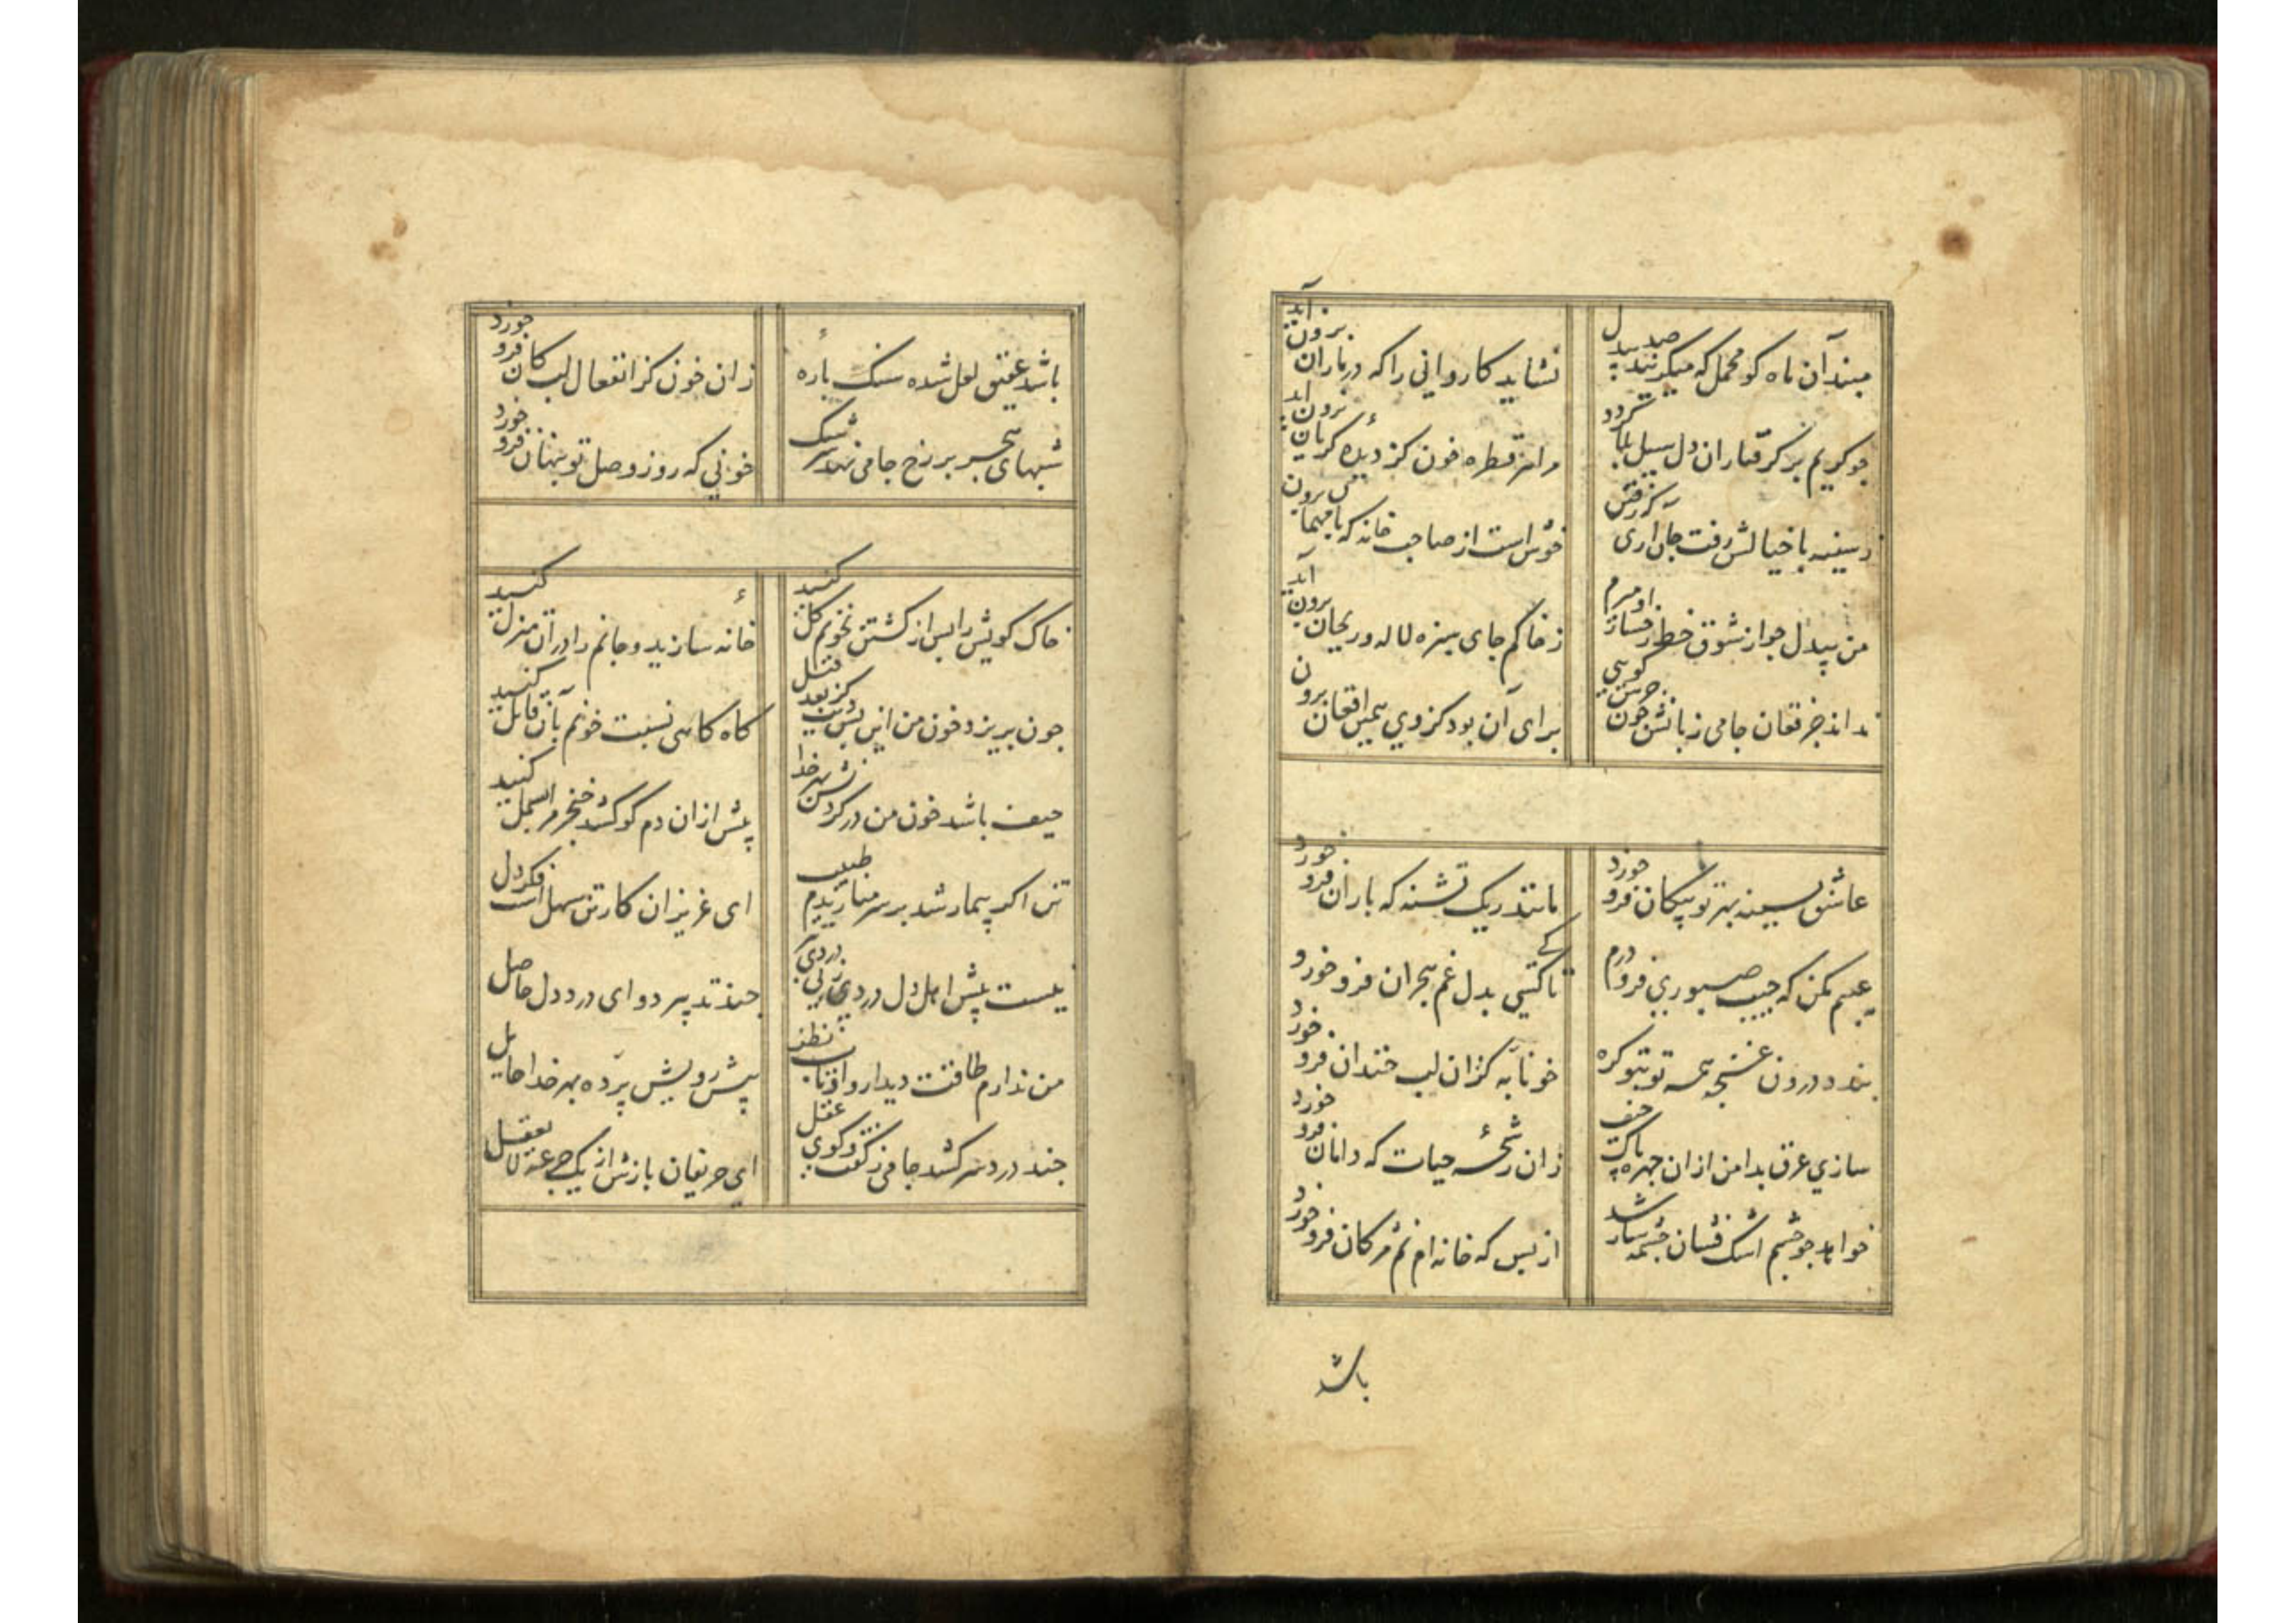 مبند آن ماه کو محمل که میگرید صد بیدل
نشاید کاروانی را که در باران برون آید
چو کریم بر کرفتاران دل سیل بلا کردد
مرا هر قطره خون کز دیدهٔ کریان برون آید
ز سینه با خیالش رفت جان آری که رفتن
خوش است از صاحب خانه که با مهمان برون
من بیدل چو از شوق خط و رخسار او میرم
ز خاکم جای سبزه لاله و ریحان برون آید
نداند جز فغان جامی زبانش چون جرس کویی
برای آن بود کز وی همین افغان برون
عاشق بسینه تیر تو پیکان فرو خورد
مانند ریک تشنه که باران فرو خورد
عیبم مکن که جیب صبوری فرو درم
تا کی کسی بدل غم هجران فرو خورد
بندد درون غنچه همه تو بتو کره
خونابه کزان لب خندان فرو خورد
سازی عرق بدامن ازان چهره پاک حیف
زان رشحهٔ حیات که دامان فرو خورد
خواهد چو چشم اشک فشان چشمه سار شد
از بس که خانه ام نم مژکان فرو خورد
باشد
باشد عقیق لعل شده سنک پارهٔ
زان خون کز انفعال لبت کان فرو خورد
شبهای هجر بر رخ جامی نهد سرشک
خونی که روز وصل تو پنهان فرو خورد
خاک کویش را پس از کشتن بخونم کل کنید
خانهٔ سازید و جانم را در آن منزل کنید
چون بریزد خون من این بس دیت کز بعد قتل
کاه کاهی نسبت خونم بآن قاتل کنید
حیف باشد خون من در کردنش بهر خدا
پیش ازان دم کو کشد خنجر مرا بسمل کنید
تن اکر بیمار شد بر سر میاریدم طبیب
ای عزیزان کار تن سهل است فکر دل
نیست پیش اهل دل دردی بتر بی دردی
چند تدبیر دوای درد دل حاصل
من ندارم طاقت دیدار او تاب نظر
پیش رویش پرده بهر خدا حایل
چند درد سر کشد جامی ز کفت و کوی عقل
ای حریفان بازش از یک جرعه لایعقل